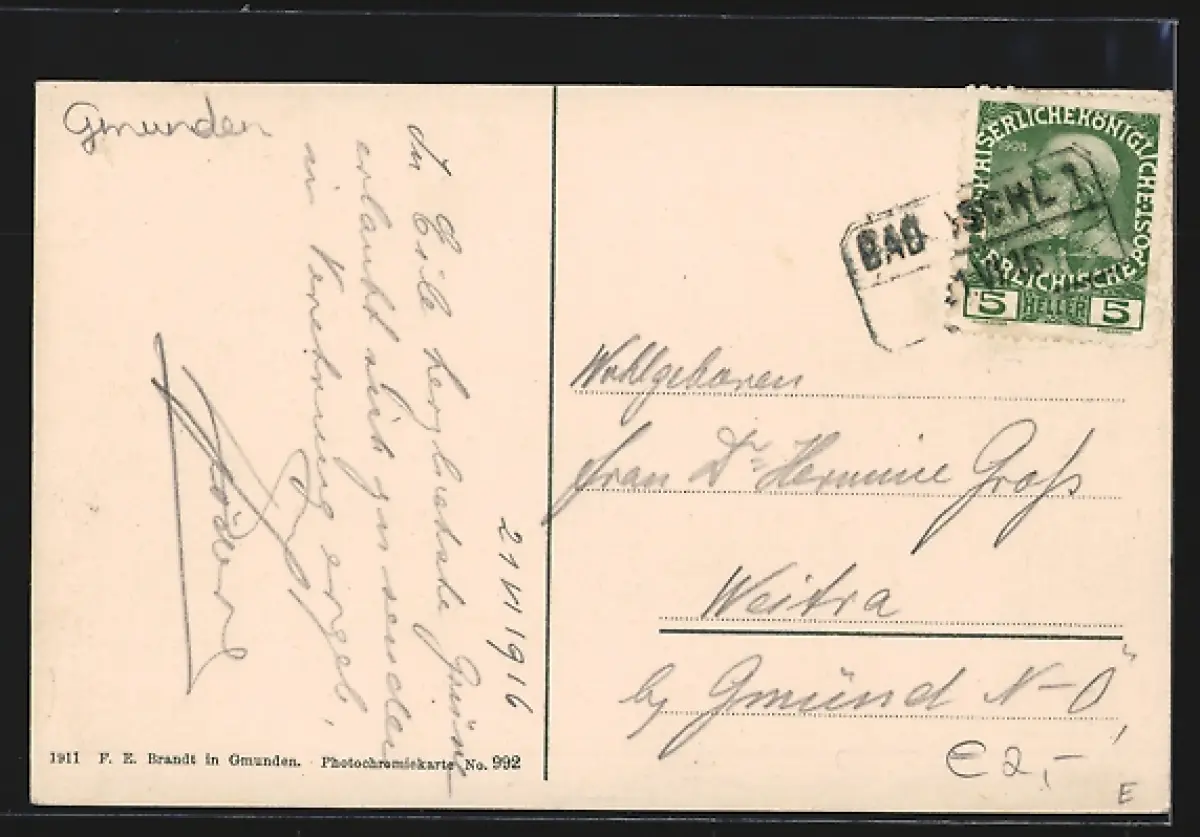 Gmunden
21 VI 1916
In Eile herzlichste Grüsse
erlaubt sich zu senden
in Verehrung ergeb.
KAISERLICHEKÖNIGLICHE
1908
5 HELLER 5
BAD ISCHL 1
21 VI 16
Wohlgeboren
Frau Dr Hermine Groß
Weitra
by Gmünd N-Ö,
€ 2,-
E
1911 F. E. Brandt in Gmunden. Photochromiekarte No. 992